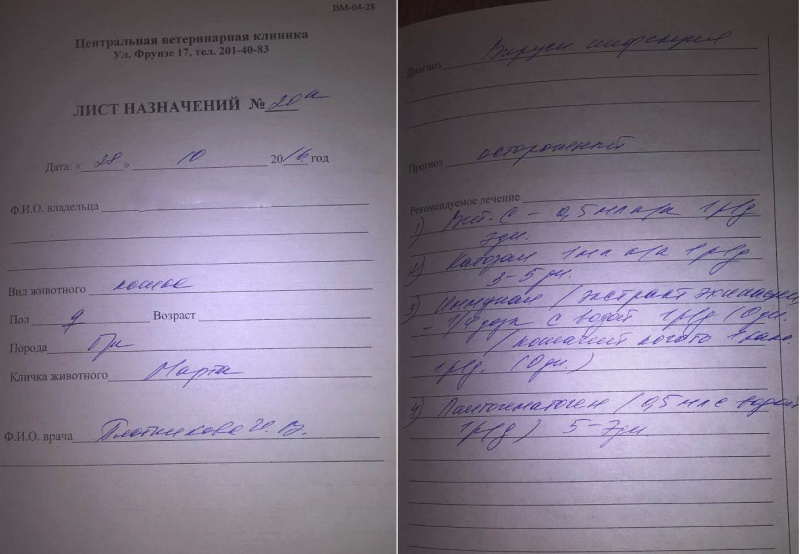 ВМ-04-28
Центральная ветеринарная клиника
Ул. Фрунзе 17, тел. 201-40-83
ЛИСТ НАЗНАЧЕНИЙ № 20а
Дата: «28» 10 2016 год
Ф.И.О. владельца
Вид животного кошка
Пол ♀ Возраст
Порода
Кличка животного Марта
Ф.И.О. врача Плотникова И. В.
Диагноз Вирусн инфекция
Прогноз осторожный
Рекомендуемое лечение
1) Вит. С – 0,5 мл п/к 1 р/д
7 дн.
2) 1 мл 1 р/д
3-5 дн.
3) Иммунал / экстракт эхинацеи
- 1/4 с водой 1 р/д 10 дн.
/ кошачий коготь
1 р/д. 10 дн. )
4) Пантогематоген / 0,5 мл с водой
1 р/д ) 5-7 дн.